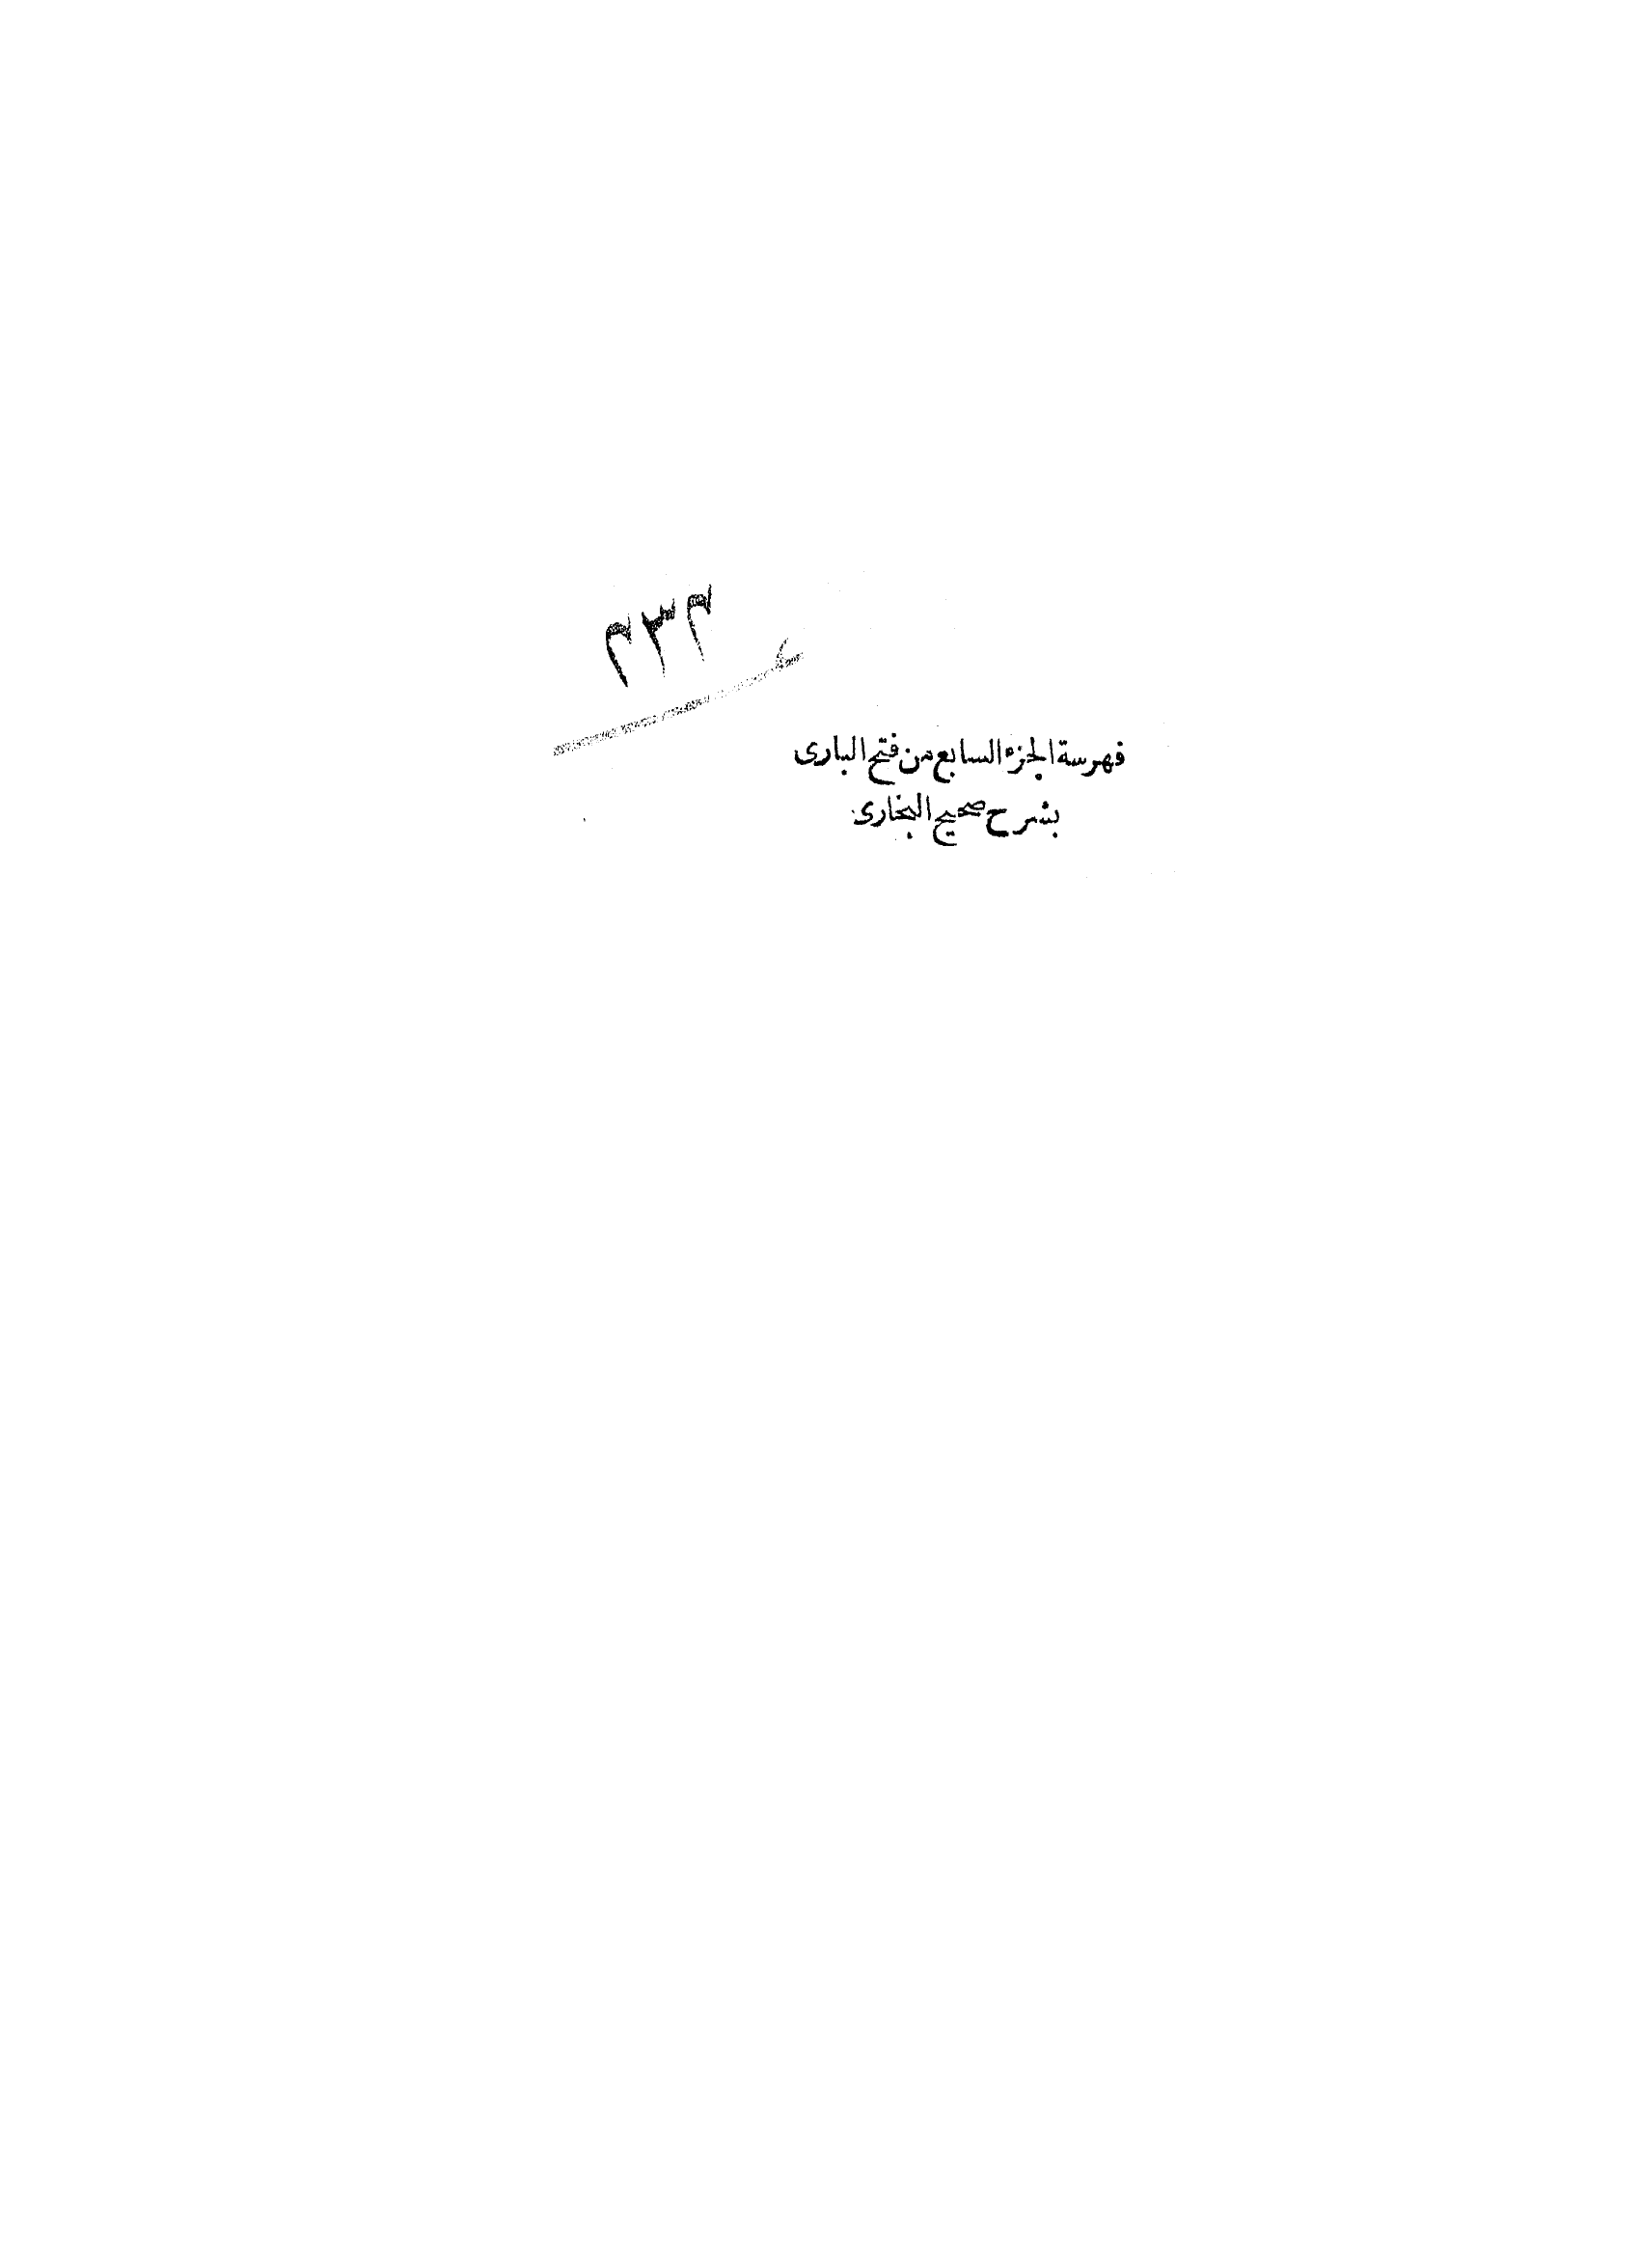 فهرسة الجزء السابع من فتح البارى
بشرح صحيح البخارى